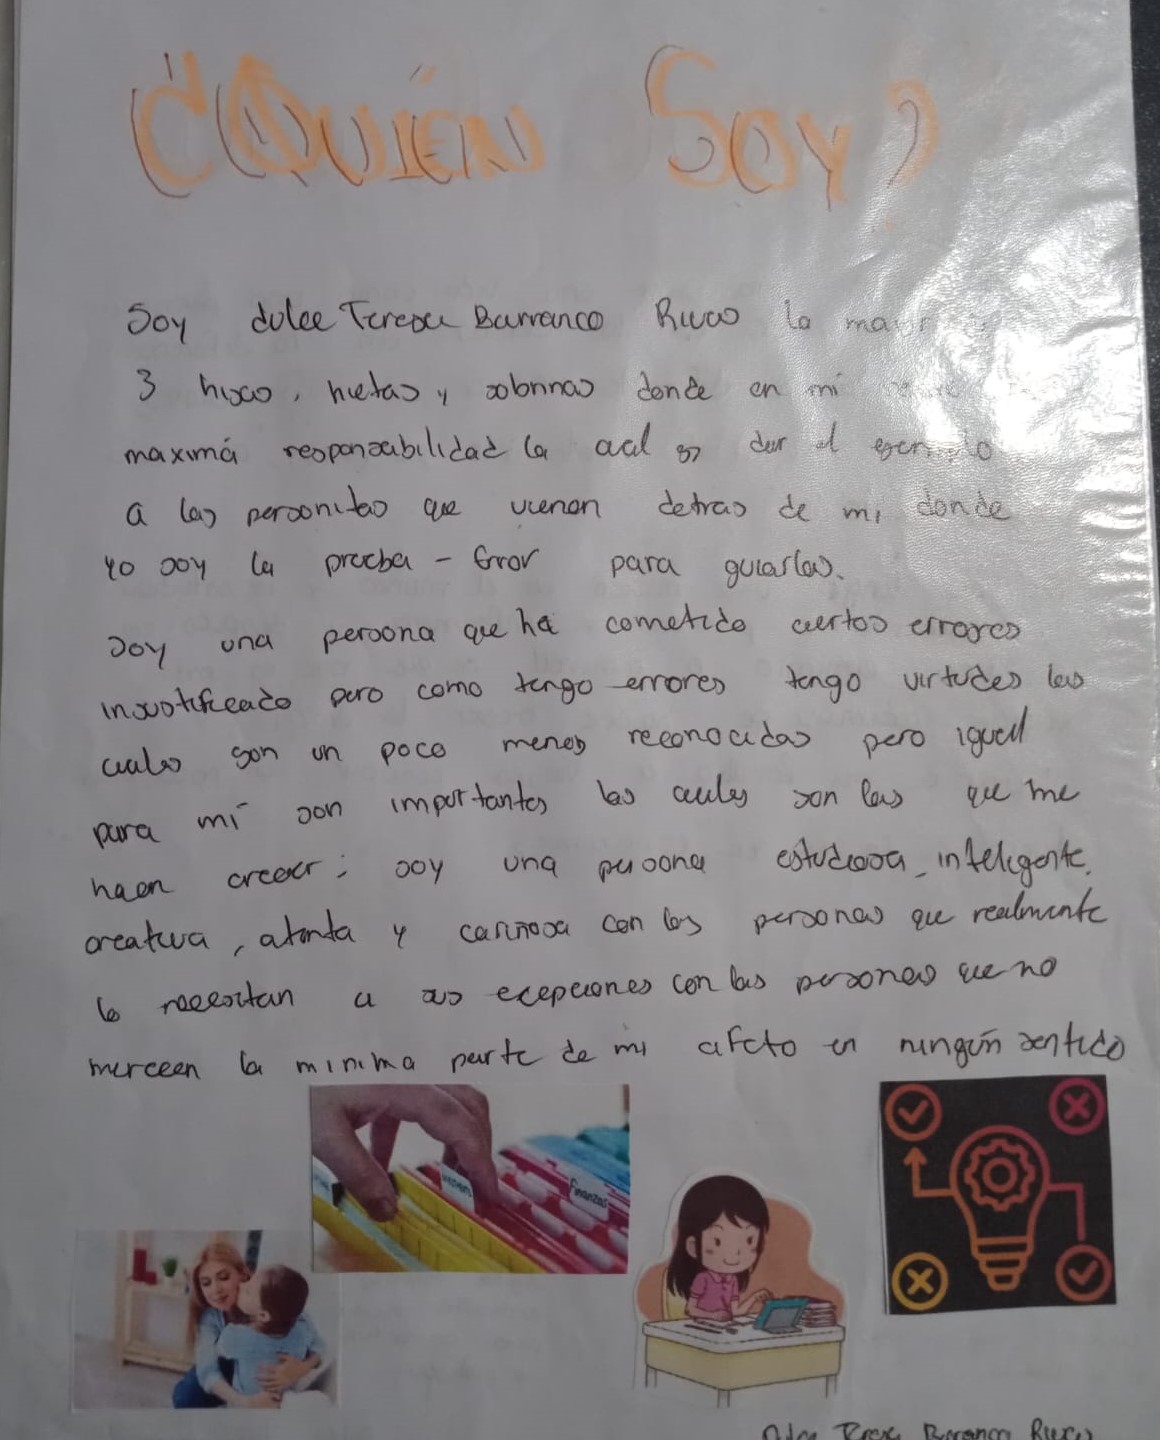 ¿QUIÉN SOY?
Soy dulce Teresa Barranco Rivas la mayor
3 hijas, nietas y sobrinas donde en mi
maximá responsabilidad la cual es dar el ejemplo
a las personitas que vienen detras de mi donde
yo soy la prueba - Error para guiarlas.
Soy una persona que ha cometido ciertos errores
injustificado pero como tengo errores tengo virtudes las
cuales son un poco menos reconocidas pero igual
para mí son importantes las cuales son las que me
hacen crecer; soy una persona estudiosa, inteligente,
creativa, atenta y cariñosa con las personas que realmente
lo necesitan a sus ecepciones con las personas que no
merecen la minima parte de mi afecto en ningún sentido
Finanzas
Dulce Teresa Barranco Rivas